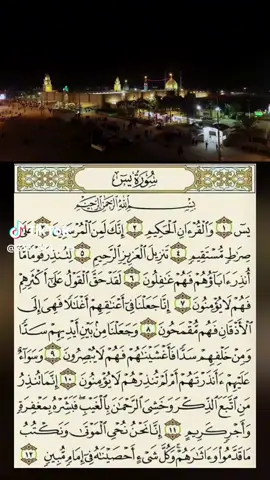 سُورَةُ يسٓ
بِسْمِ اللَّهِ الرَّحْمَٰنِ الرَّحِيمِ
يسٓ ١ وَالْقُرْءَانِ الْحَكِيمِ ٢ إِنَّكَ لَمِنَ الْمُرْسَلِينَ ٣ عَلَىٰ
صِرَٰطٍ مُّسْتَقِيمٍ ٤ تَنزِيلَ الْعَزِيزِ الرَّحِيمِ ٥ لِتُنذِرَ قَوْمًا مَّا
أُنذِرَ ءَابَآؤُهُمْ فَهُمْ غَٰفِلُونَ ٦ لَقَدْ حَقَّ الْقَوْلُ عَلَىٰٓ أَكْثَرِهِمْ
فَهُمْ لَا يُؤْمِنُونَ ٧ إِنَّا جَعَلْنَا فِىٓ أَعْنَٰقِهِمْ أَغْلَٰلًا فَهِىَ إِلَى
الْأَذْقَانِ فَهُم مُّقْمَحُونَ ٨ وَجَعَلْنَا مِنۢ بَيْنِ أَيْدِيهِمْ سَدًّا
وَمِنْ خَلْفِهِمْ سَدًّا فَأَغْشَيْنَٰهُمْ فَهُمْ لَا يُبْصِرُونَ ٩ وَسَوَآءٌ
عَلَيْهِمْ ءَأَنذَرْتَهُمْ أَمْ لَمْ تُنذِرْهُمْ لَا يُؤْمِنُونَ ١٠ إِنَّمَا تُنذِرُ
مَنِ اتَّبَعَ الذِّكْرَ وَخَشِىَ الرَّحْمَٰنَ بِالْغَيْبِ فَبَشِّرْهُ بِمَغْفِرَةٍ
وَأَجْرٍ كَرِيمٍ ١١ إِنَّا نَحْنُ نُحْىِ الْمَوْتَىٰ وَنَكْتُبُ
مَا قَدَّمُوا۟ وَءَاثَٰرَهُمْ وَكُلَّ شَىْءٍ أَحْصَيْنَٰهُ فِىٓ إِمَامٍ مُّبِينٍ ١٢